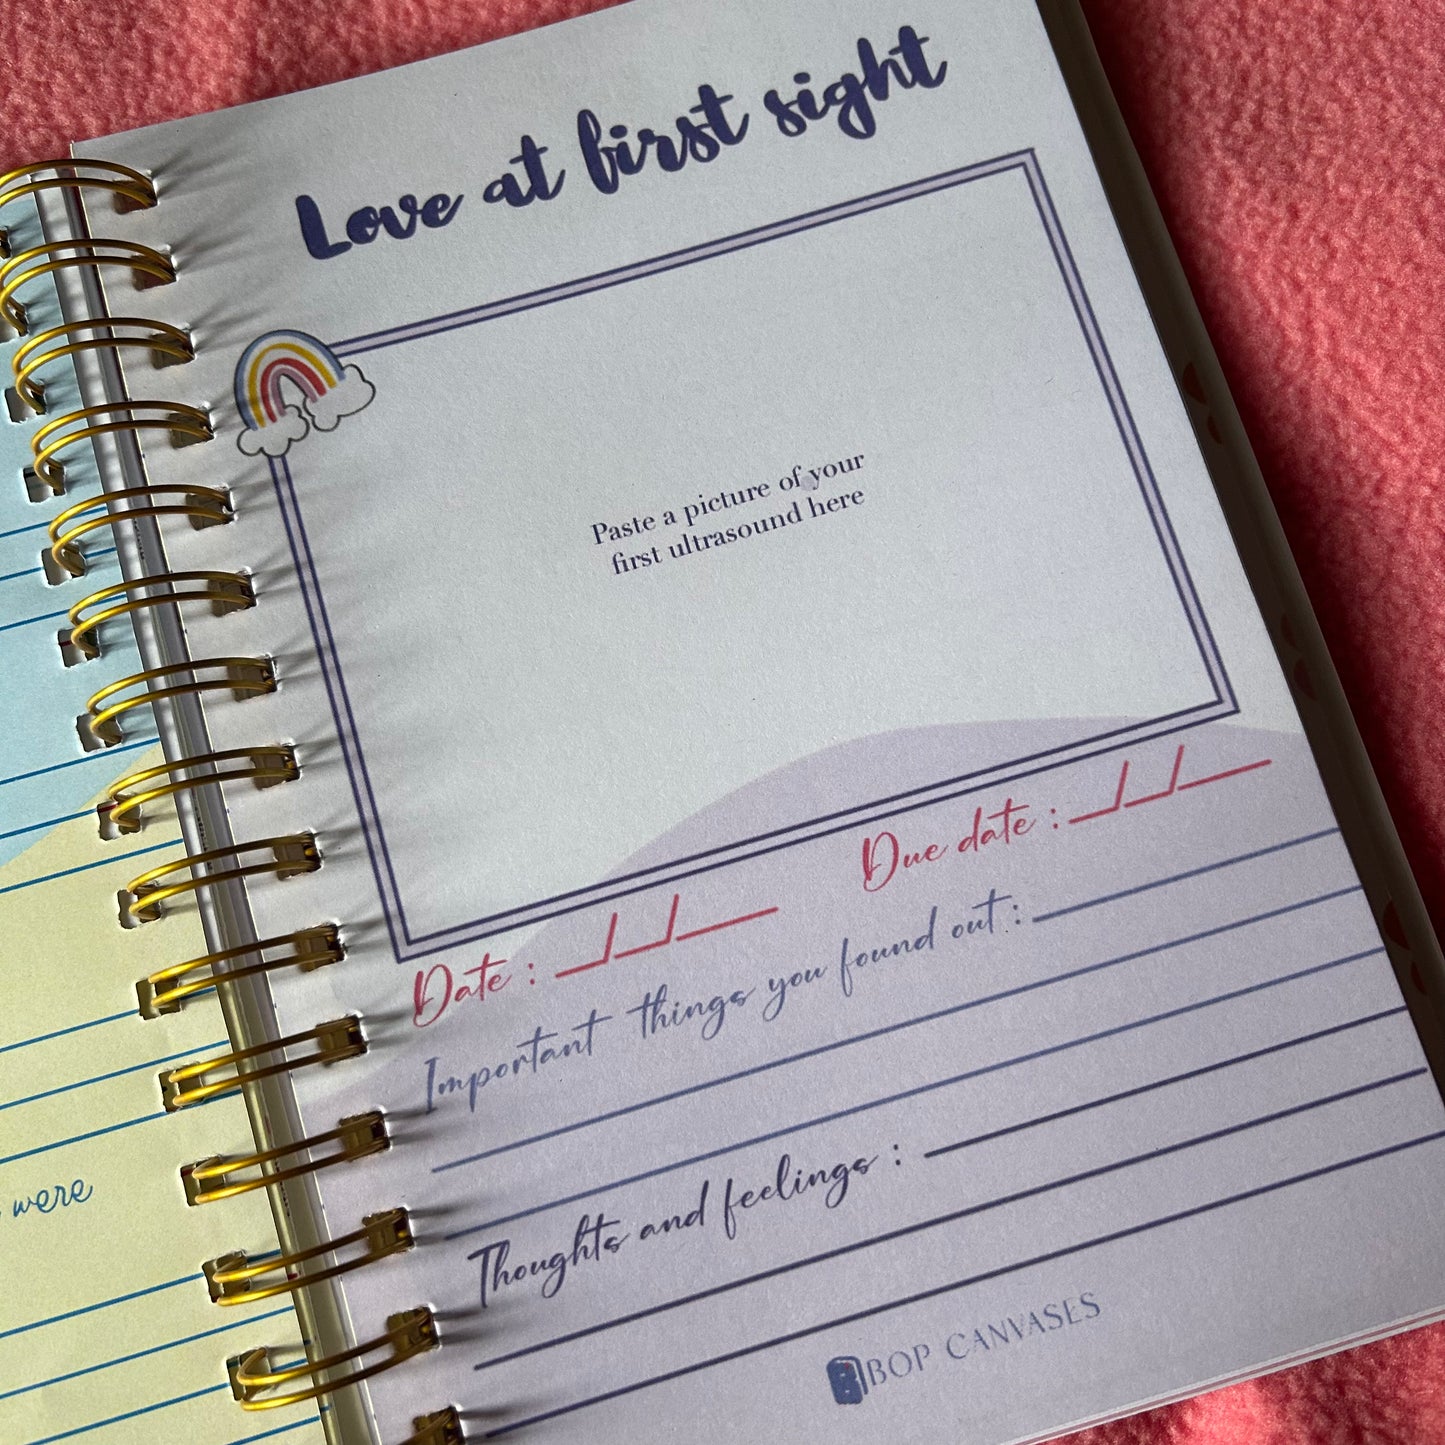 Love at first sight
Paste a picture of your
first ultrasound here
Date : __/__/____
Due date : __/__/____
Important things you found out :
Thoughts and feelings :
BOP CANVASES
were